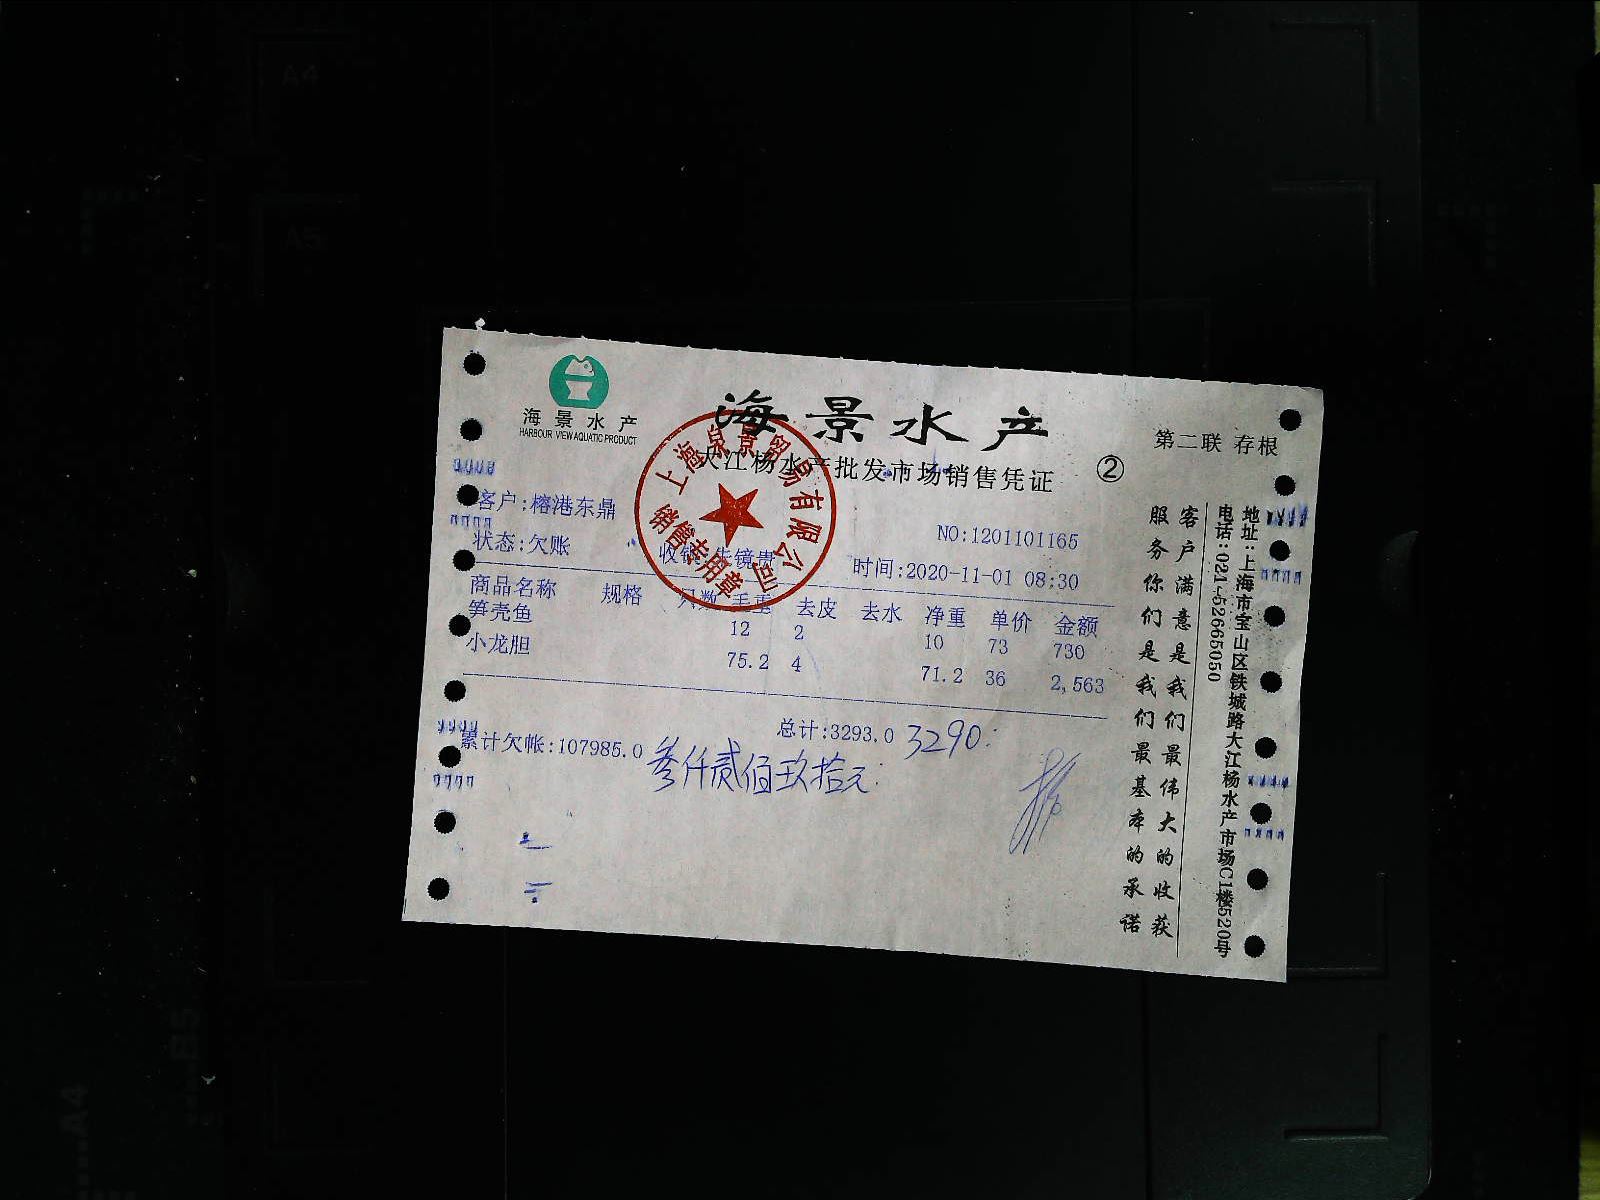 海景水产
HARBOUR VIEW AQUATIC PRODUCT
海景水产
大江杨水产批发市场销售凭证
②
第二联 存根
客户:榕港东鼎
NO:1201101165
状态:欠账
时间:2020-11-01 08:30
商品名称 规格 只数 毛重 去皮 去水 净重 单价 金额
笋壳鱼 12 2 10 73 730
小龙胆 75.2 4 71.2 36 2,563
总计:3293.0 3290.
累计欠帐:107985.0 叁仟贰佰玖拾元
上海泉景贸易有限公司
销售专用章
客户满意是我们最伟大的收获
服务你们是我们最基本的承诺
地址:上海市宝山区铁城路大江杨水产市场C1楼520号
电话:021-52665050
A4
A5
B5
A4